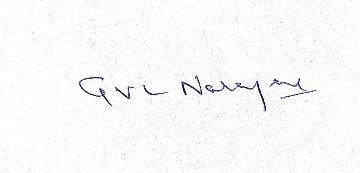 GVL Narayana